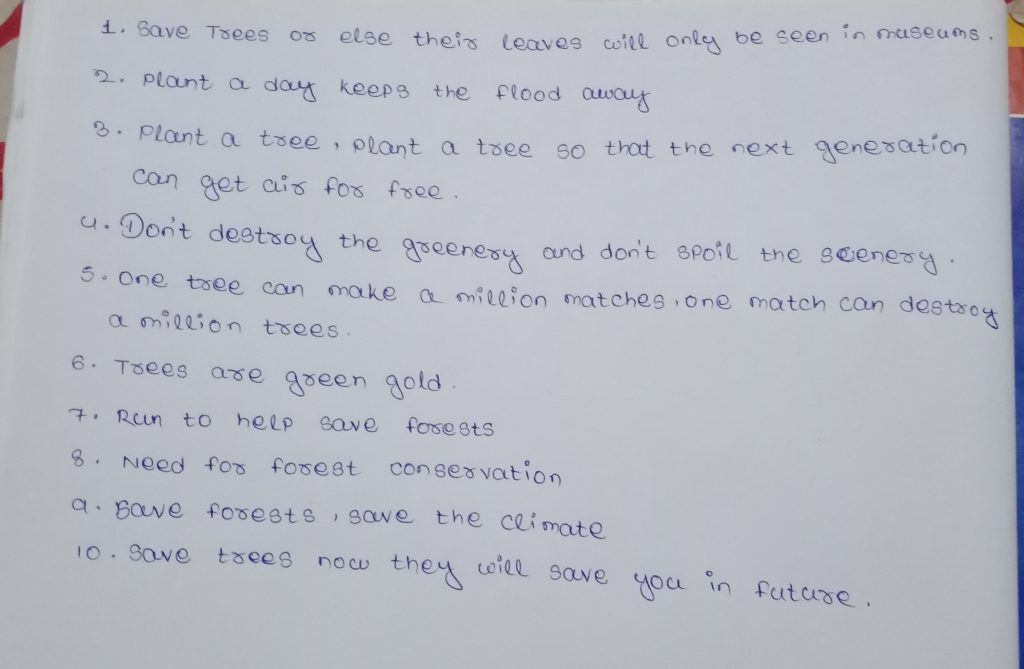 1. Save Trees or else their leaves will only be seen in museums.
2. Plant a day keeps the flood away
3. Plant a tree, plant a tree so that the next generation
can get air for free.
4. Don't destroy the greenery and don't spoil the scenery.
5. One tree can make a million matches, one match can destroy
a million trees.
6. Trees are green gold.
7. Run to help save forests
8. Need for forest conservation
9. Save forests, save the climate
10. Save trees now they will save you in future.